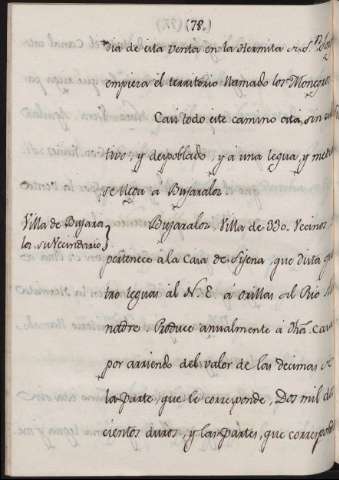 (78.)
dia de esta venta en la Hermita de S.n
empieza el territorio llamado los Monegros
Casi todo este camino está, sin cul
tivo, y despoblado, y a una legua, y media
se llega á Bujaraloz.
Villa de Bujara
loz, su Vecindario
Bujaraloz, Villa de 330. Vecinos
pertenece a la Casa de Sijena, que dista qua
tro leguas al N. E. á orillas del Rio Al
nadre. Produce anualmente á dha. Casa
por arriendo del valor de las decimas de
la parte, que le corresponde, Dos mil do
cientos duros, y las partes, que correspond